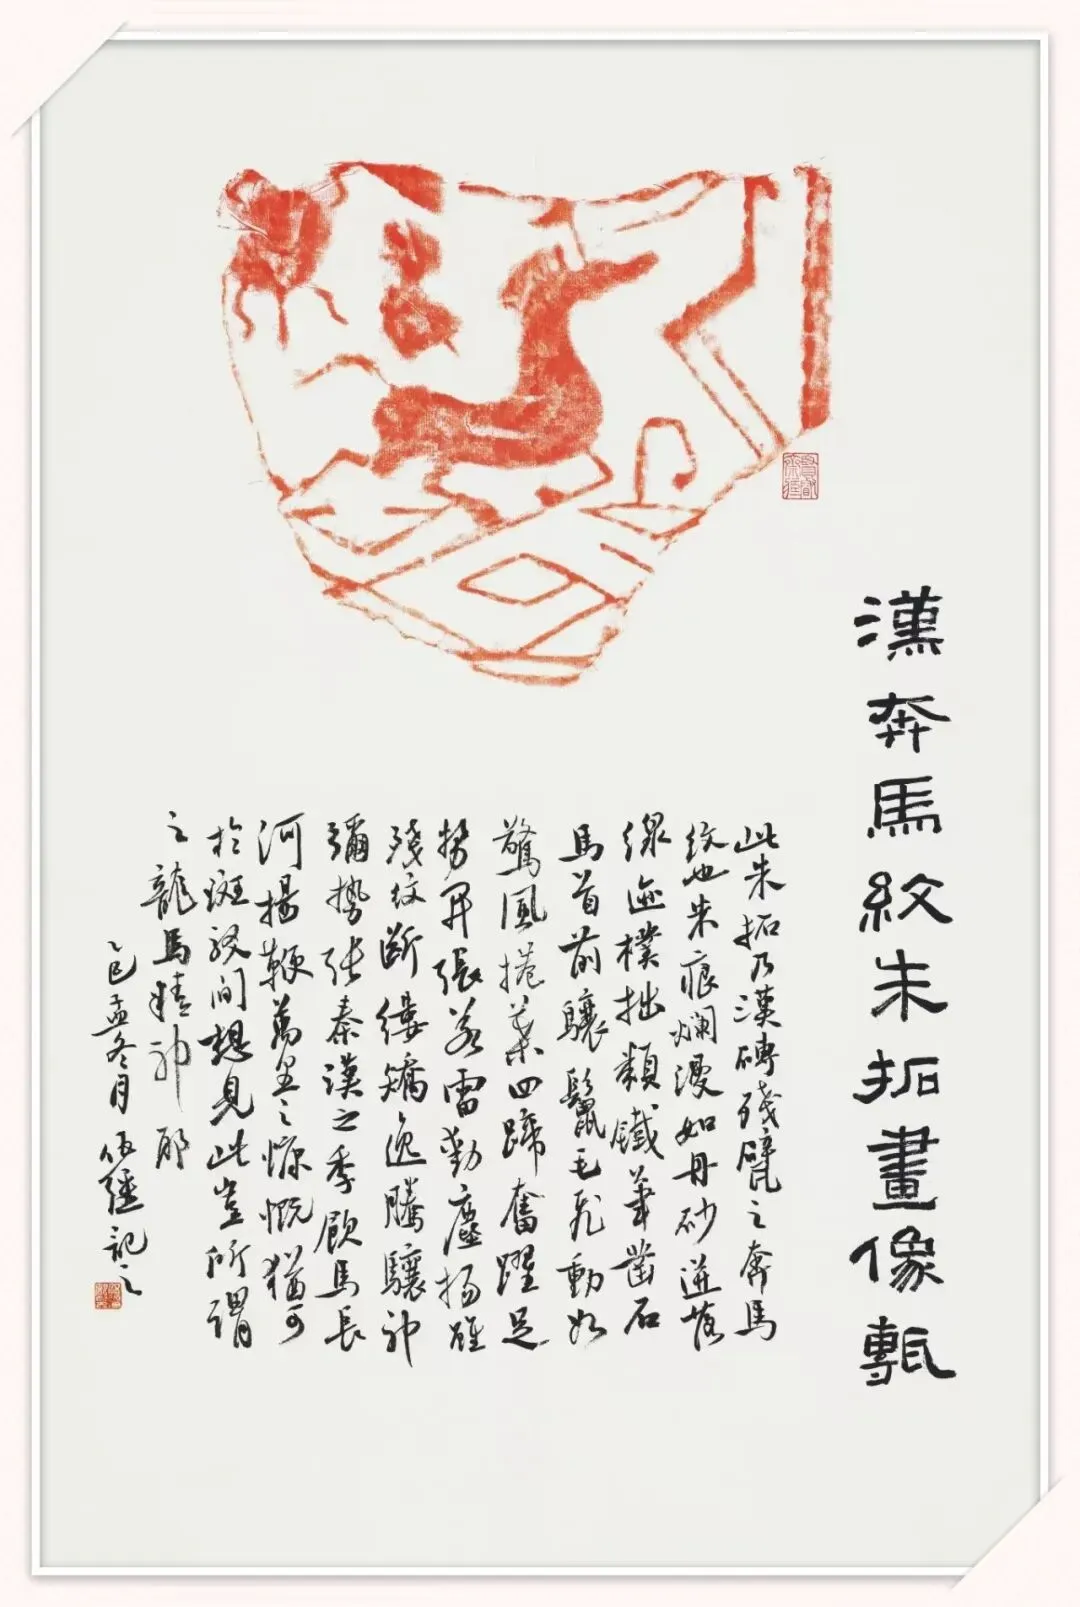 漢奔馬紋朱拓畫像甎
此朱拓乃漢磚殘甓之奔馬
紋也朱痕爛漫如丹砂迸落
線迹樸拙類鐵筆凿石
馬首前驤鬣毛飛動如
驚風捲葉四蹄奮躍足
勢开張若雷動塵揚雖
殘紋斷縷矯逸騰驤神
彌勢张秦漢之季厥馬長
河揚鞭萬里之慷慨猶可
於斑駁间想見此豈所謂
之龍馬精神耶
乙巳孟冬月 記之